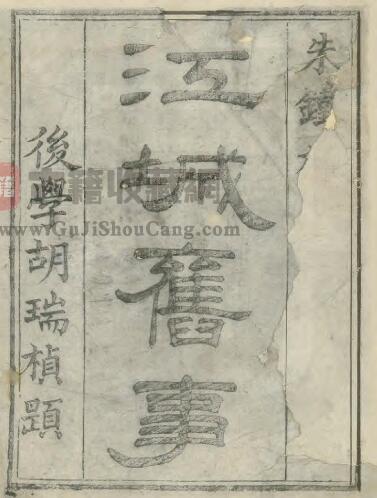 朱鐘
江城舊事
後學胡瑞楨題
古籍收藏網
www.GuJiShouCang.com